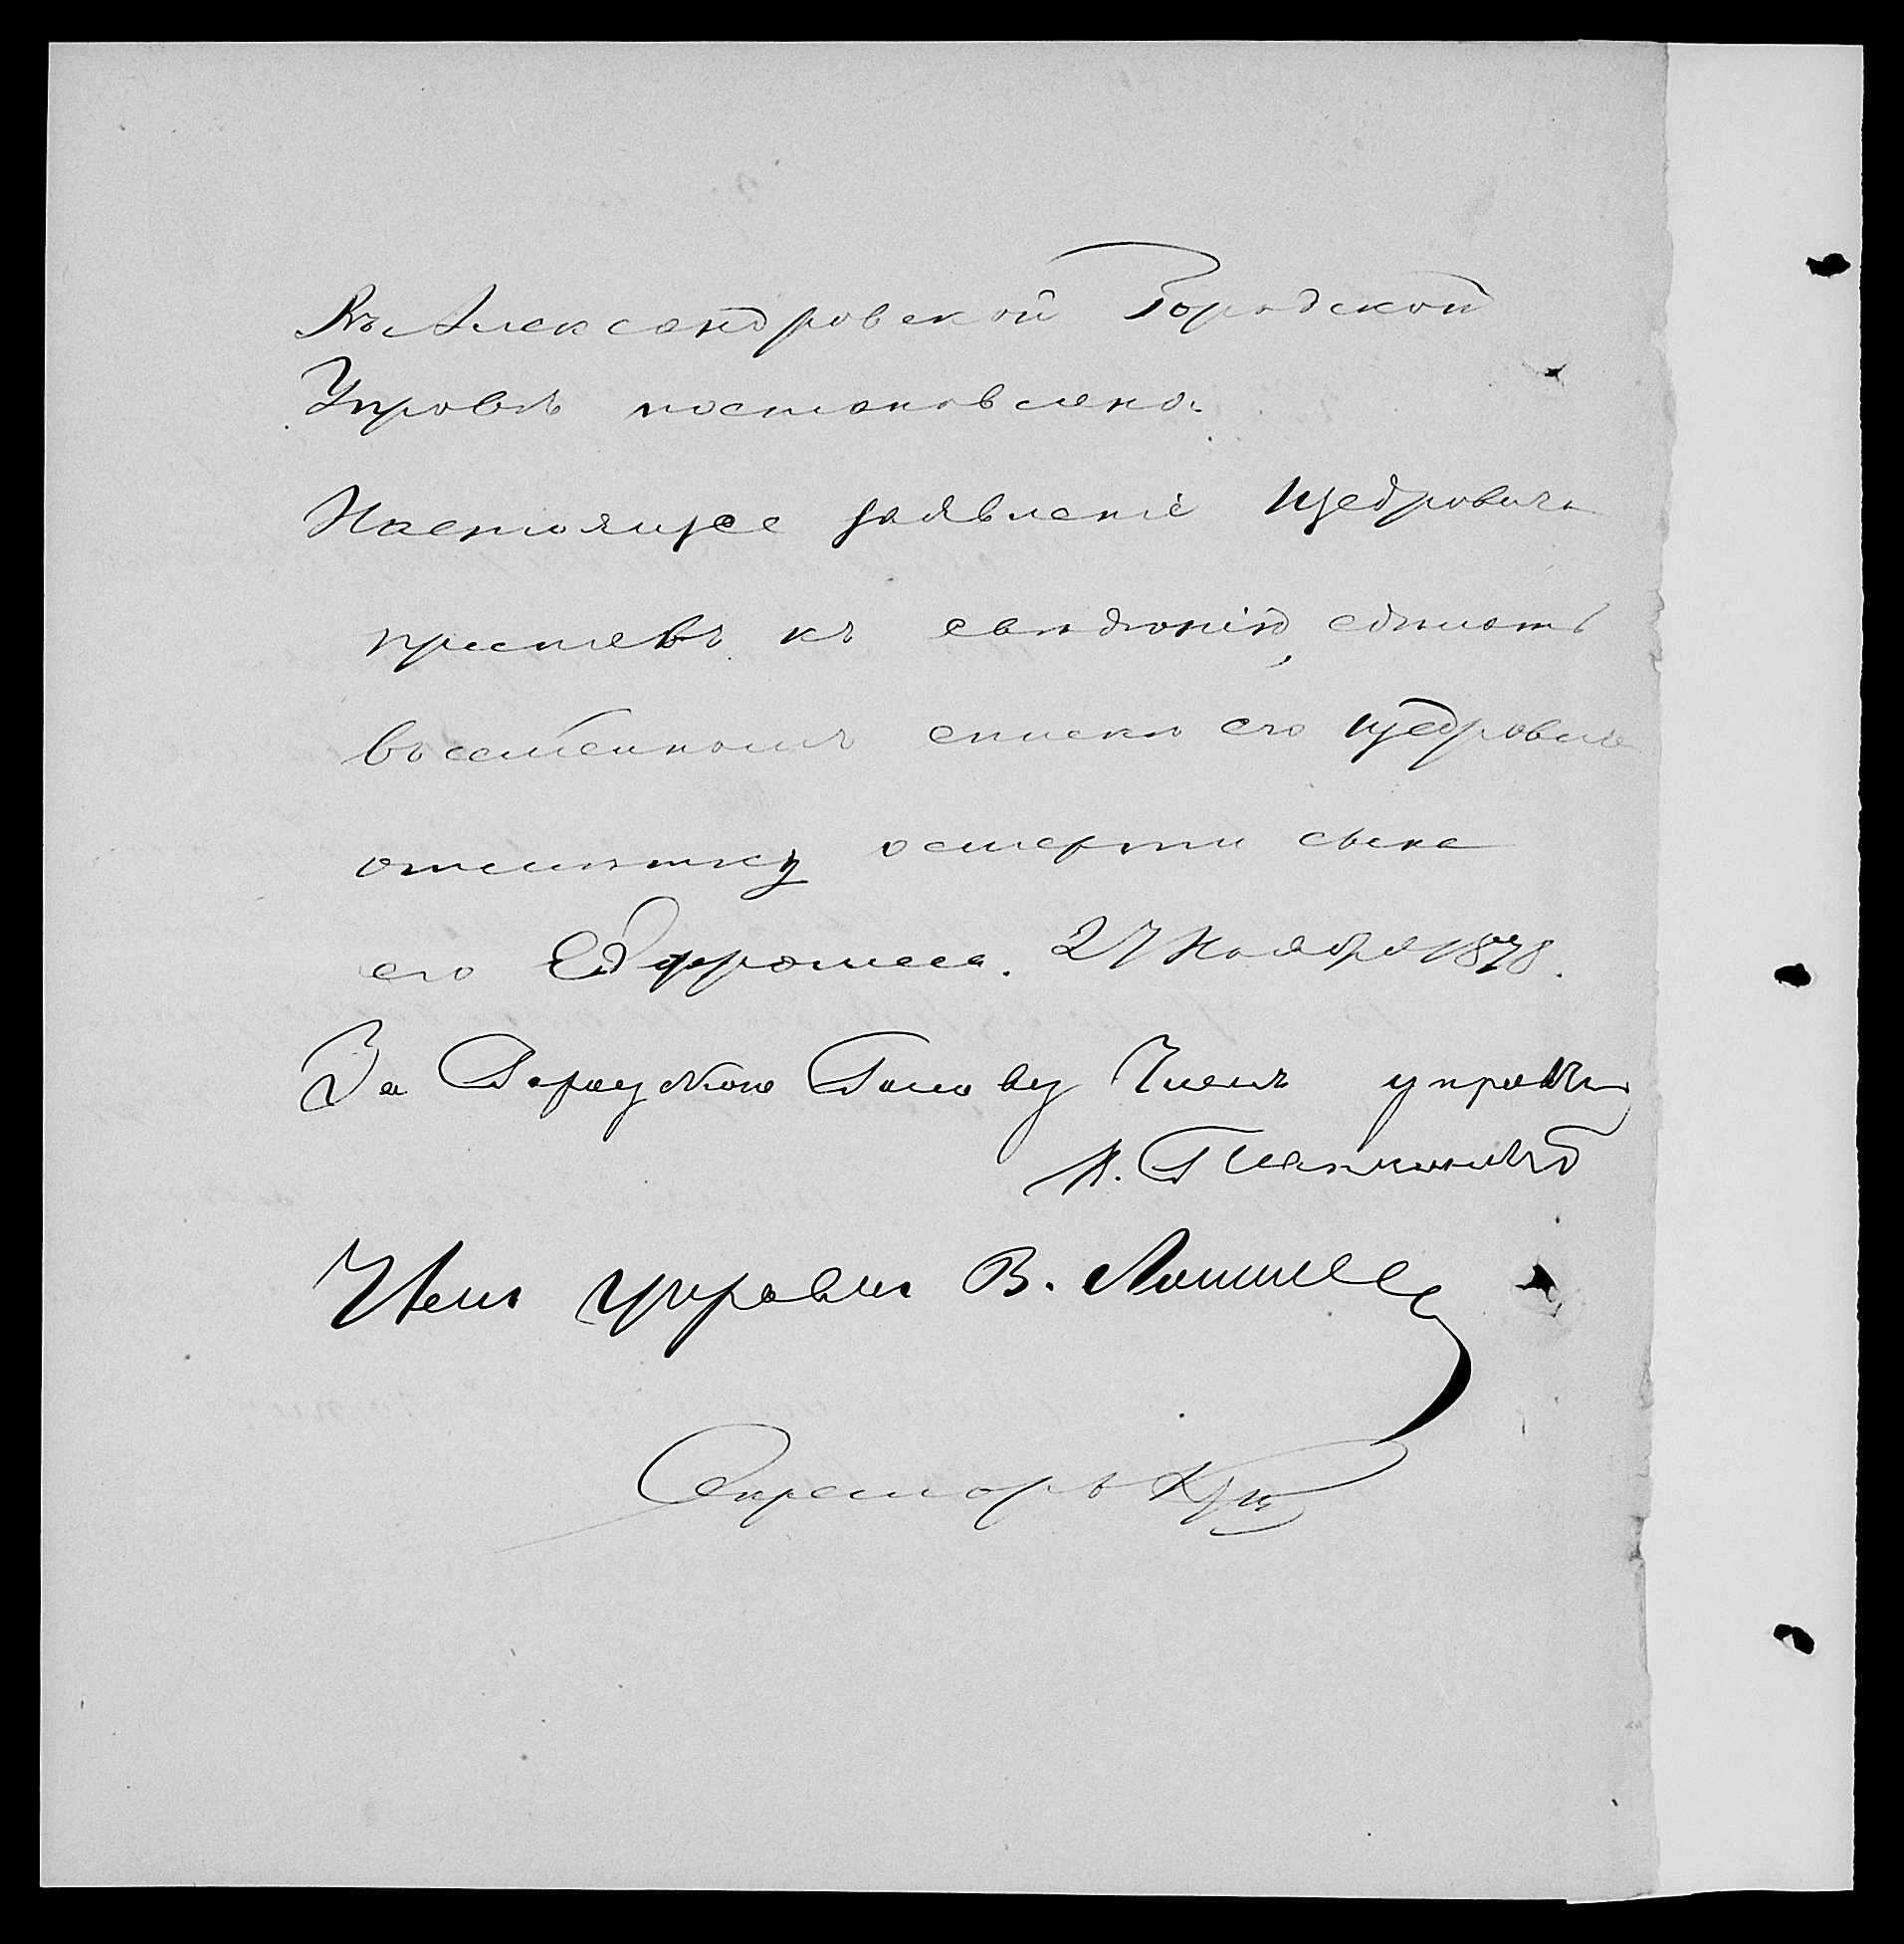 Въ Александровской Городской
Управѣ постановлено:
Настоящее заявленіе Щедровича
принявъ къ свѣдѣнію, сдѣлать
въ семейномъ спискѣ его Щедровича
отмѣтку о смерти сына
его 27 Ноября 1878.
За Городскаго Голову Членъ управы
Членъ управы В.
Секретарь